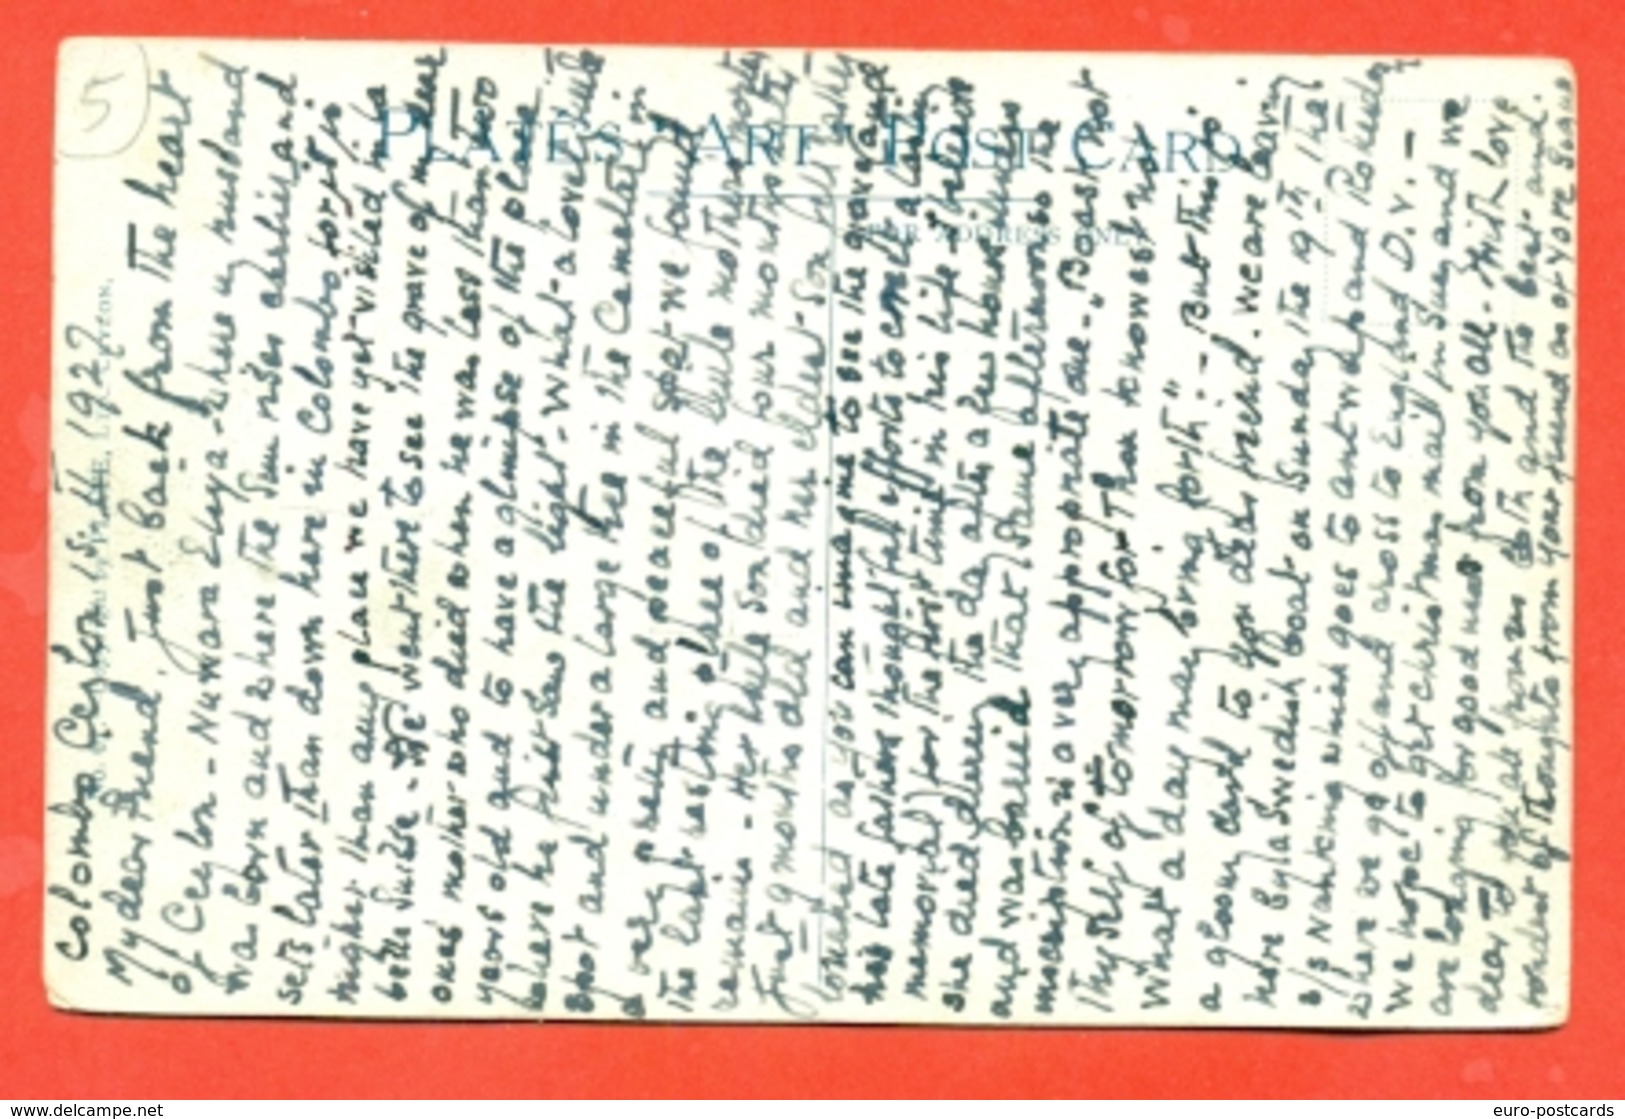 Colombo Ceylon 15.11.1927
My dear friend. Just back from the heart
of Ceylon - Nuwara Eliya - where my husband
was born and where the Sun rises earlier and
sets later than down here in Colombo for it is
higher than any place we have yet visited in la
belle Suisse - We went there to see the grave of my dear
one's mother who died when he was less than two
years old and to have a glimpse of the place
where he first saw the light - What a lovely little
spot and under a large tree in the Cemetery in
a very and peaceful spot we found
the last resting place of the little mother's
remains - Her little son died four months
just 9 months old and her eldest son
looked as you can imagine to see the grave and
his late father's thoughtful efforts to a
memorial for the first time in his life I believe
she died the day after a few hours
and was buried that same afternoon so the
inscription is a very appropriate one - "Boast not
thyself of tomorrow for thou knowest not
what a day may bring forth" :- But this is
a gloomy card to you dear friend. We are leaving
here by a Swedish boat on Sunday the 19th the
s/s Nanking which goes to Antwerp and
where we go off and cross to England D.V. -
We hope to get Christmas mail in Suez and we
are longing for good news from you all - With love
dear to you all from us both and the best and
of thoughts from your friend as of yore
PLATÉ'S "ART" POST CARD
FOR ADDRESS ONLY
5
www.delcampe.net
euro-postcards